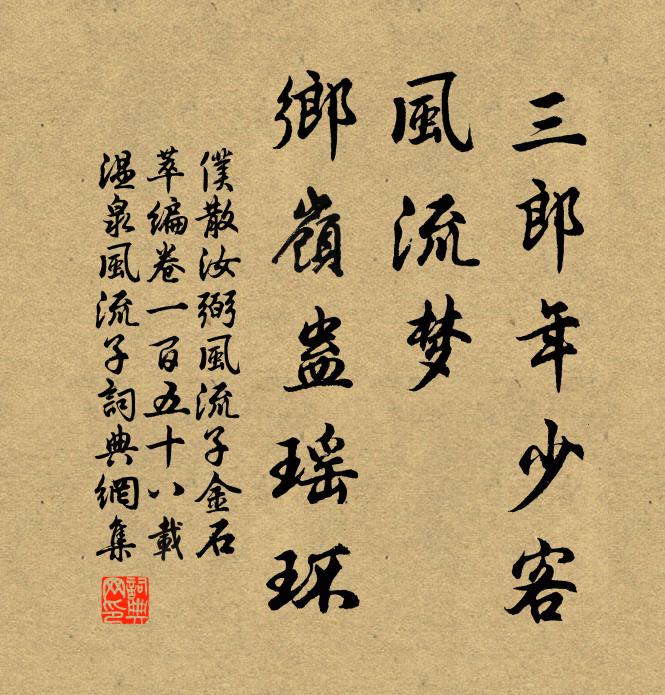 三郎年少客
風流梦
鄉嶺蛊瑶环
僕散汝弼風流子金石
萃編卷一百五十八載
温泉風流子詞典網集
詞典网印